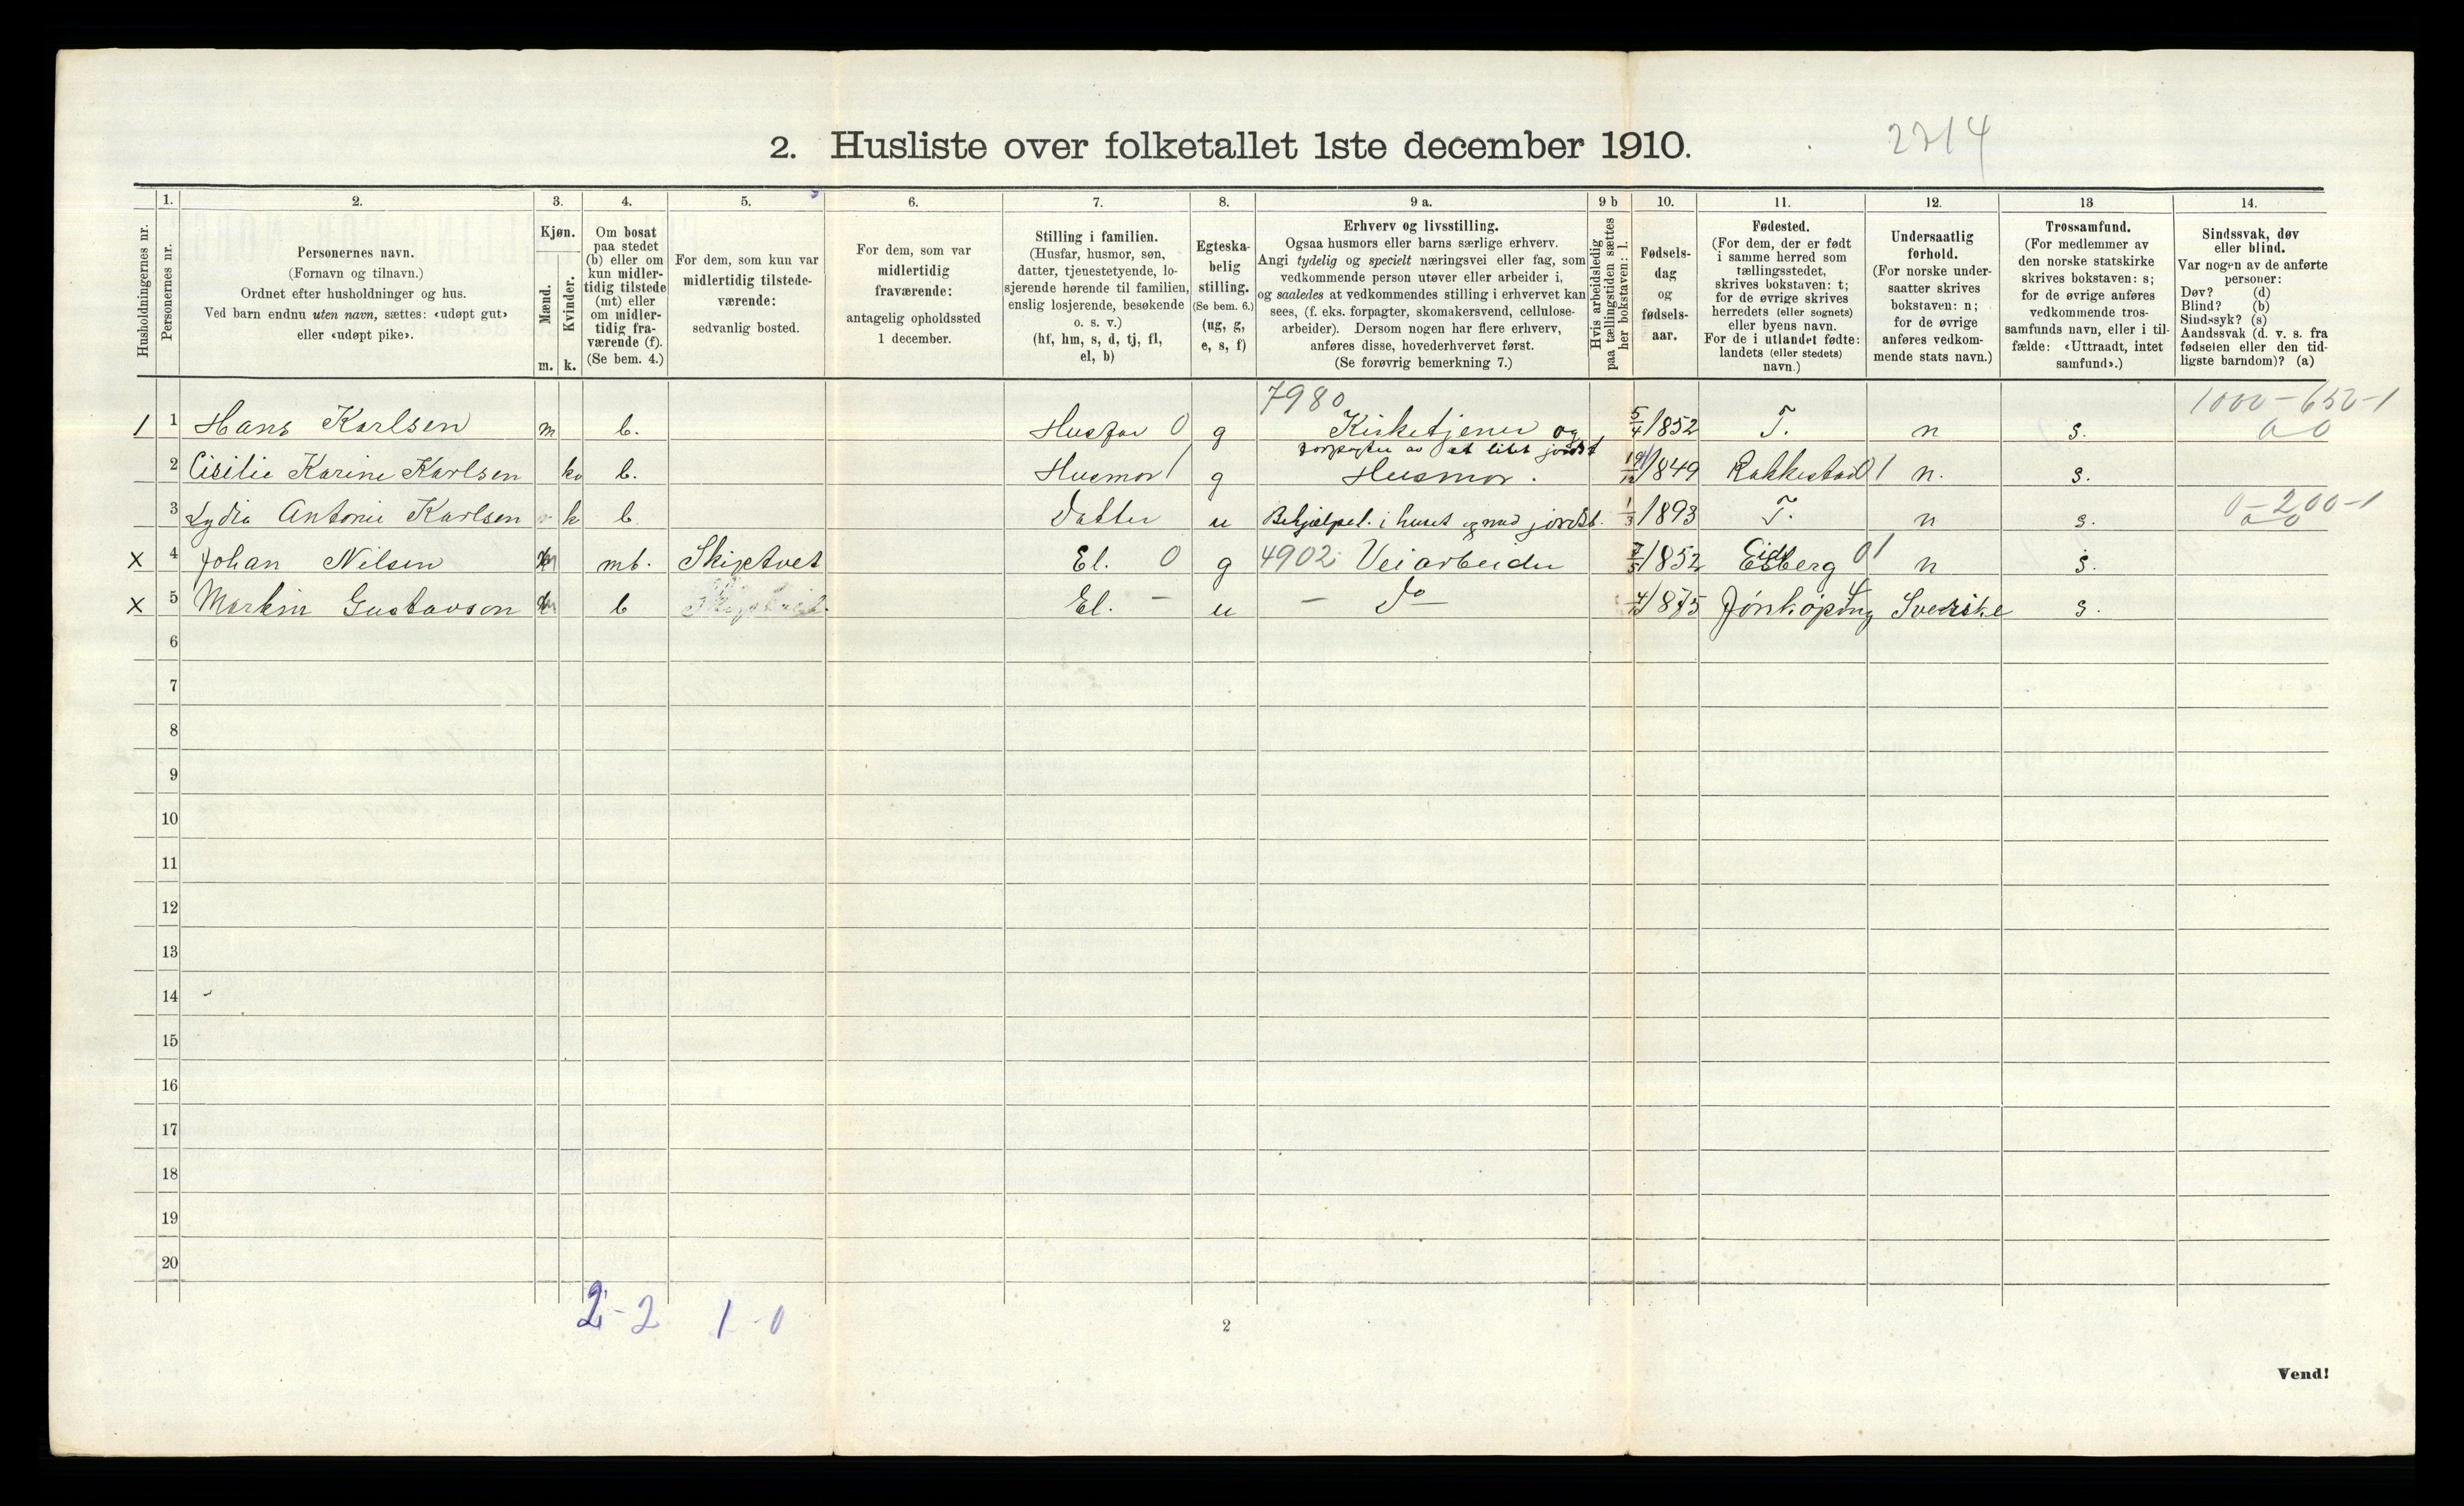 2. Husliste over folketallet 1ste december 1910.
2714
Husholdningernes nr.
1.
Personernes nr.
2.
Personernes navn.
(Fornavn og tilnavn.)
Ordnet efter husholdninger og hus.
Ved barn endnu uten navn, sættes: «udøpt gut»
eller «udøpt pike».
3.
Kjøn.
Mænd.
Kvinder.
m. k.
4.
Om bosat
paa stedet
(b) eller om
kun midler-
tidig tilstede
(mt) eller
om midler-
tidig fra-
værende (f).
(Se bem. 4.)
5.
For dem, som kun var
midlertidig tilstede-
værende:
sedvanlig bosted.
6.
For dem, som var
midlertidig
fraværende:
antagelig opholdssted
1 december.
7.
Stilling i familien.
(Husfar, husmor, søn,
datter, tjenestetyende, lo-
sjerende hørende til familien,
enslig losjerende, besøkende
o. s. v.)
(hf, hm, s, d, tj, fl,
el, b)
8.
Egteska-
belig
stilling.
(Se bem. 6.)
(ug, g,
e, s, f)
9 a.
Erhverv og livsstilling.
Ogsaa husmors eller barns særlige erhverv.
Angi tydelig og specielt næringsvei eller fag, som
vedkommende person utøver eller arbeider i,
og saaledes at vedkommendes stilling i erhvervet kan
sees, (f. eks. forpagter, skomakersvend, cellulose-
arbeider). Dersom nogen har flere erhverv,
anføres disse, hovederhvervet først.
(Se forøvrig bemerkning 7.)
9 b
Hvis arbeidsledig
paa tællingstiden sættes
her bokstaven: l.
10.
Fødsels-
dag
og
fødsels-
aar.
11.
Fødested.
(For dem, der er født
i samme herred som
tællingsstedet,
skrives bokstaven: t;
for de øvrige skrives
herredets (eller sognets)
eller byens navn.
For de i utlandet fødte:
landets (eller stedets)
navn.)
12.
Undersaatlig
forhold.
(For norske under-
saatter skrives
bokstaven: n;
for de øvrige
anføres vedkom-
mende stats navn.)
13
Trossamfund.
(For medlemmer av
den norske statskirke
skrives bokstaven: s;
for de øvrige anføres
vedkommende tros-
samfunds navn, eller i til-
fælde: «Uttraadt, intet
samfund».)
14.
Sindssvak, døv
eller blind.
Var nogen av de anførte
personer:
Døv? (d)
Blind? (b)
Sindssyk? (s)
Aandssvak (d. v. s. fra
fødselen eller den tid-
ligste barndom)? (a)
7980 1000-650-1
1 1 Hans Karlsen m b. Husfar 0 g Kirketjener og 5/4 1852 T. n s. 0 0
forpagter av et litet jordst
2 Cisilie Karine Karlsen k b. Husmor 1 g Husmor. 1849 Rakkestad 01 n. s.
3 Lydia Antonie Karlsen k b Datter u Behjælpel. i huset og med jordst. 1/3 1893 T. n s. 0-200-1
x 4 Johan Nilsen m mt. Skiptvet El. 0 g 4902 Veiarbeider 7/5 1852 Eidsberg 01 n s.
x 5 Martin Gustavson m b El. - u - Do 1875 Jönköping Sverike s.
6
7
8
9
10
11
12
13
14
15
16
17
18
19
20
2-2 1-0
2
Vend!